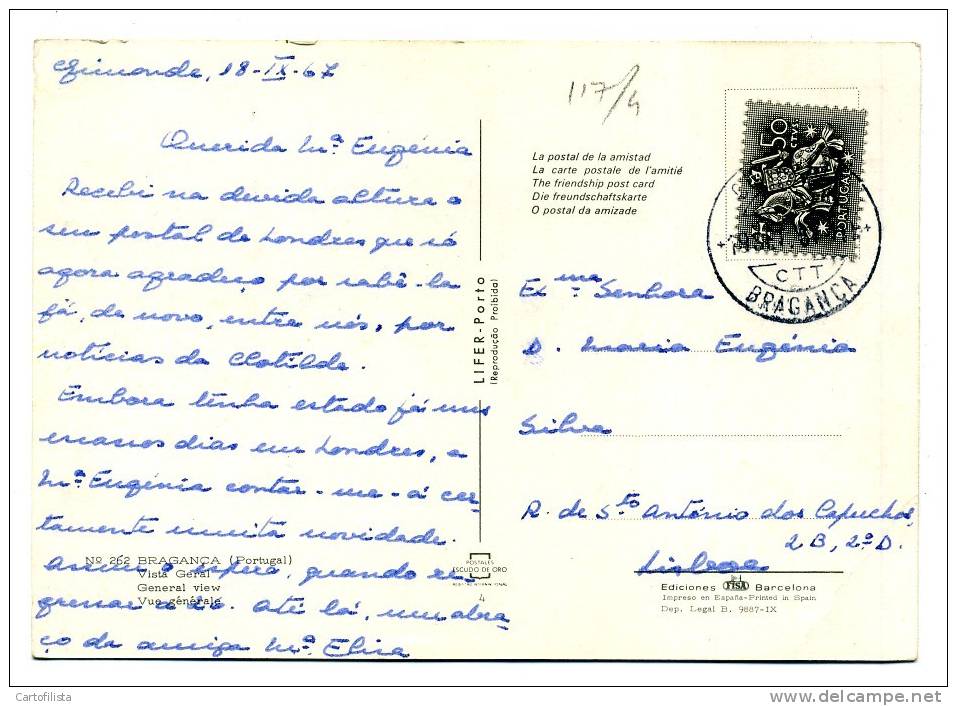 Gimonde, 18-IX-67
117/4
Querida Mª Eugénia
Recebi na devida altura o
seu postal de Londres que só
agora agradeço por sabê-la
já, de novo, entre nós, por
notícias da Clotilde.
Embora tenha estado já uns
escassos dias em Londres, a
Mª Eugénia contar-me-á cer-
tamente muita novidade.
Assim o espero, quando re-
gressar a
Até lá, um abra-
ço da amiga Mª Elisa
Nº 262 BRAGANÇA (Portugal)
Vista Geral
General view
Vue générale
POSTALES
ESCUDO DE ORO
4
LIFER-Porto
(Reprodução Proibida)
La postal de la amistad
La carte postale de l'amitié
The friendship post card
Die freundschaftskarte
O postal da amizade
50
CTVS
PORTUGAL
CTT
BRAGANÇA
Exma Senhora
D. Maria Eugénia
Silva
R. de Sto António dos Capuchos,
2B, 2º D.
Lisboa
Ediciones FISA Barcelona
Impreso en España-Printed in Spain
Dep. Legal B. 9887-IX
Cartofilista
www.delcampe.net